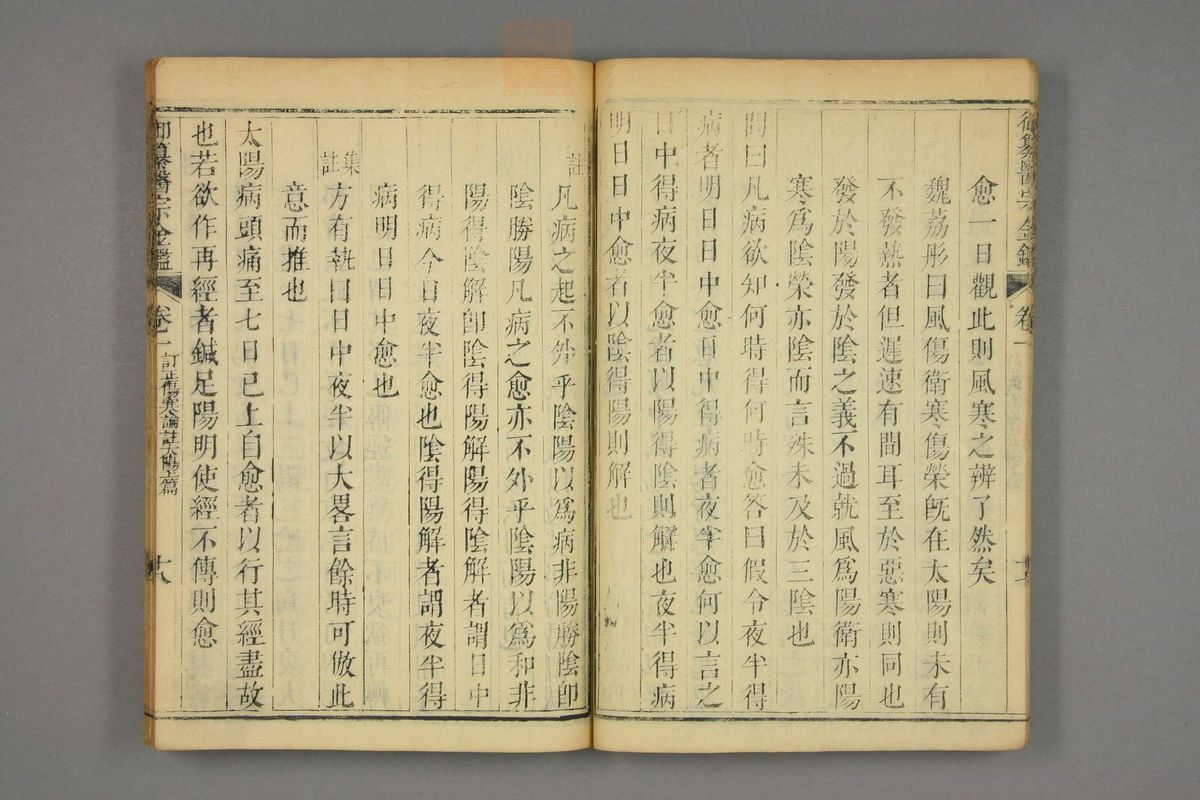 御纂醫宗金鑑 卷一
愈一日觀此則風寒之辨了然矣
魏荔彤曰風傷衛寒傷榮旣在太陽則未有
不發熱者但遲速有間耳至於惡寒則同也
發於陽發於陰之義不過就風爲陽衛亦陽
寒爲陰榮亦陰而言殊未及於三陰也
問曰凡病欲知何時得何時愈答曰假令夜半得
病者明日日中愈日中得病者夜半愈何以言之
日中得病夜半愈者以陽得陰則解也夜半得病
明日日中愈者以陰得陽則解也
註凡病之起不外乎陰陽以爲病非陽勝陰卽
陰勝陽凡病之愈亦不外乎陰陽以爲和非
陽得陰解卽陰得陽解陽得陰解者謂日中
得病今日夜半愈也陰得陽解者謂夜半得
病明日日中愈也
集註方有執曰日中夜半以大畧言餘時可倣此
意而推也
太陽病頭痛至七日已上自愈者以行其經盡故
也若欲作再經者鍼足陽明使經不傳則愈
御纂醫宗金鑑 卷一 訂正傷寒論註太陽上篇 十八